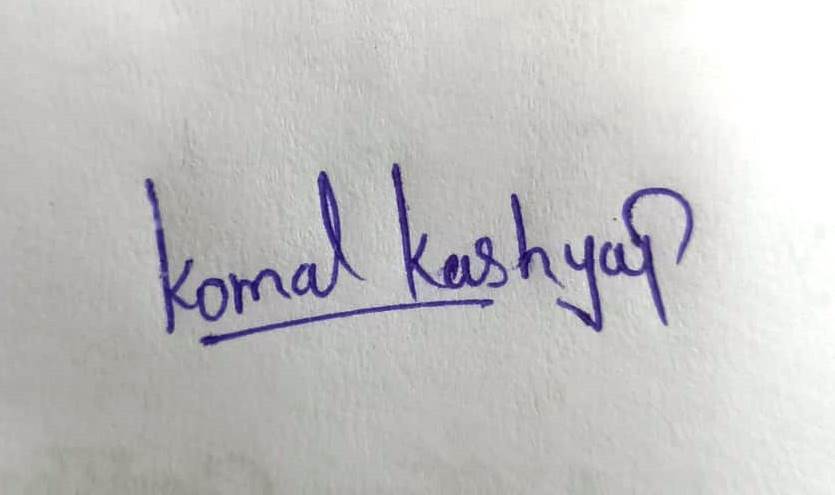 Komal Kashyap